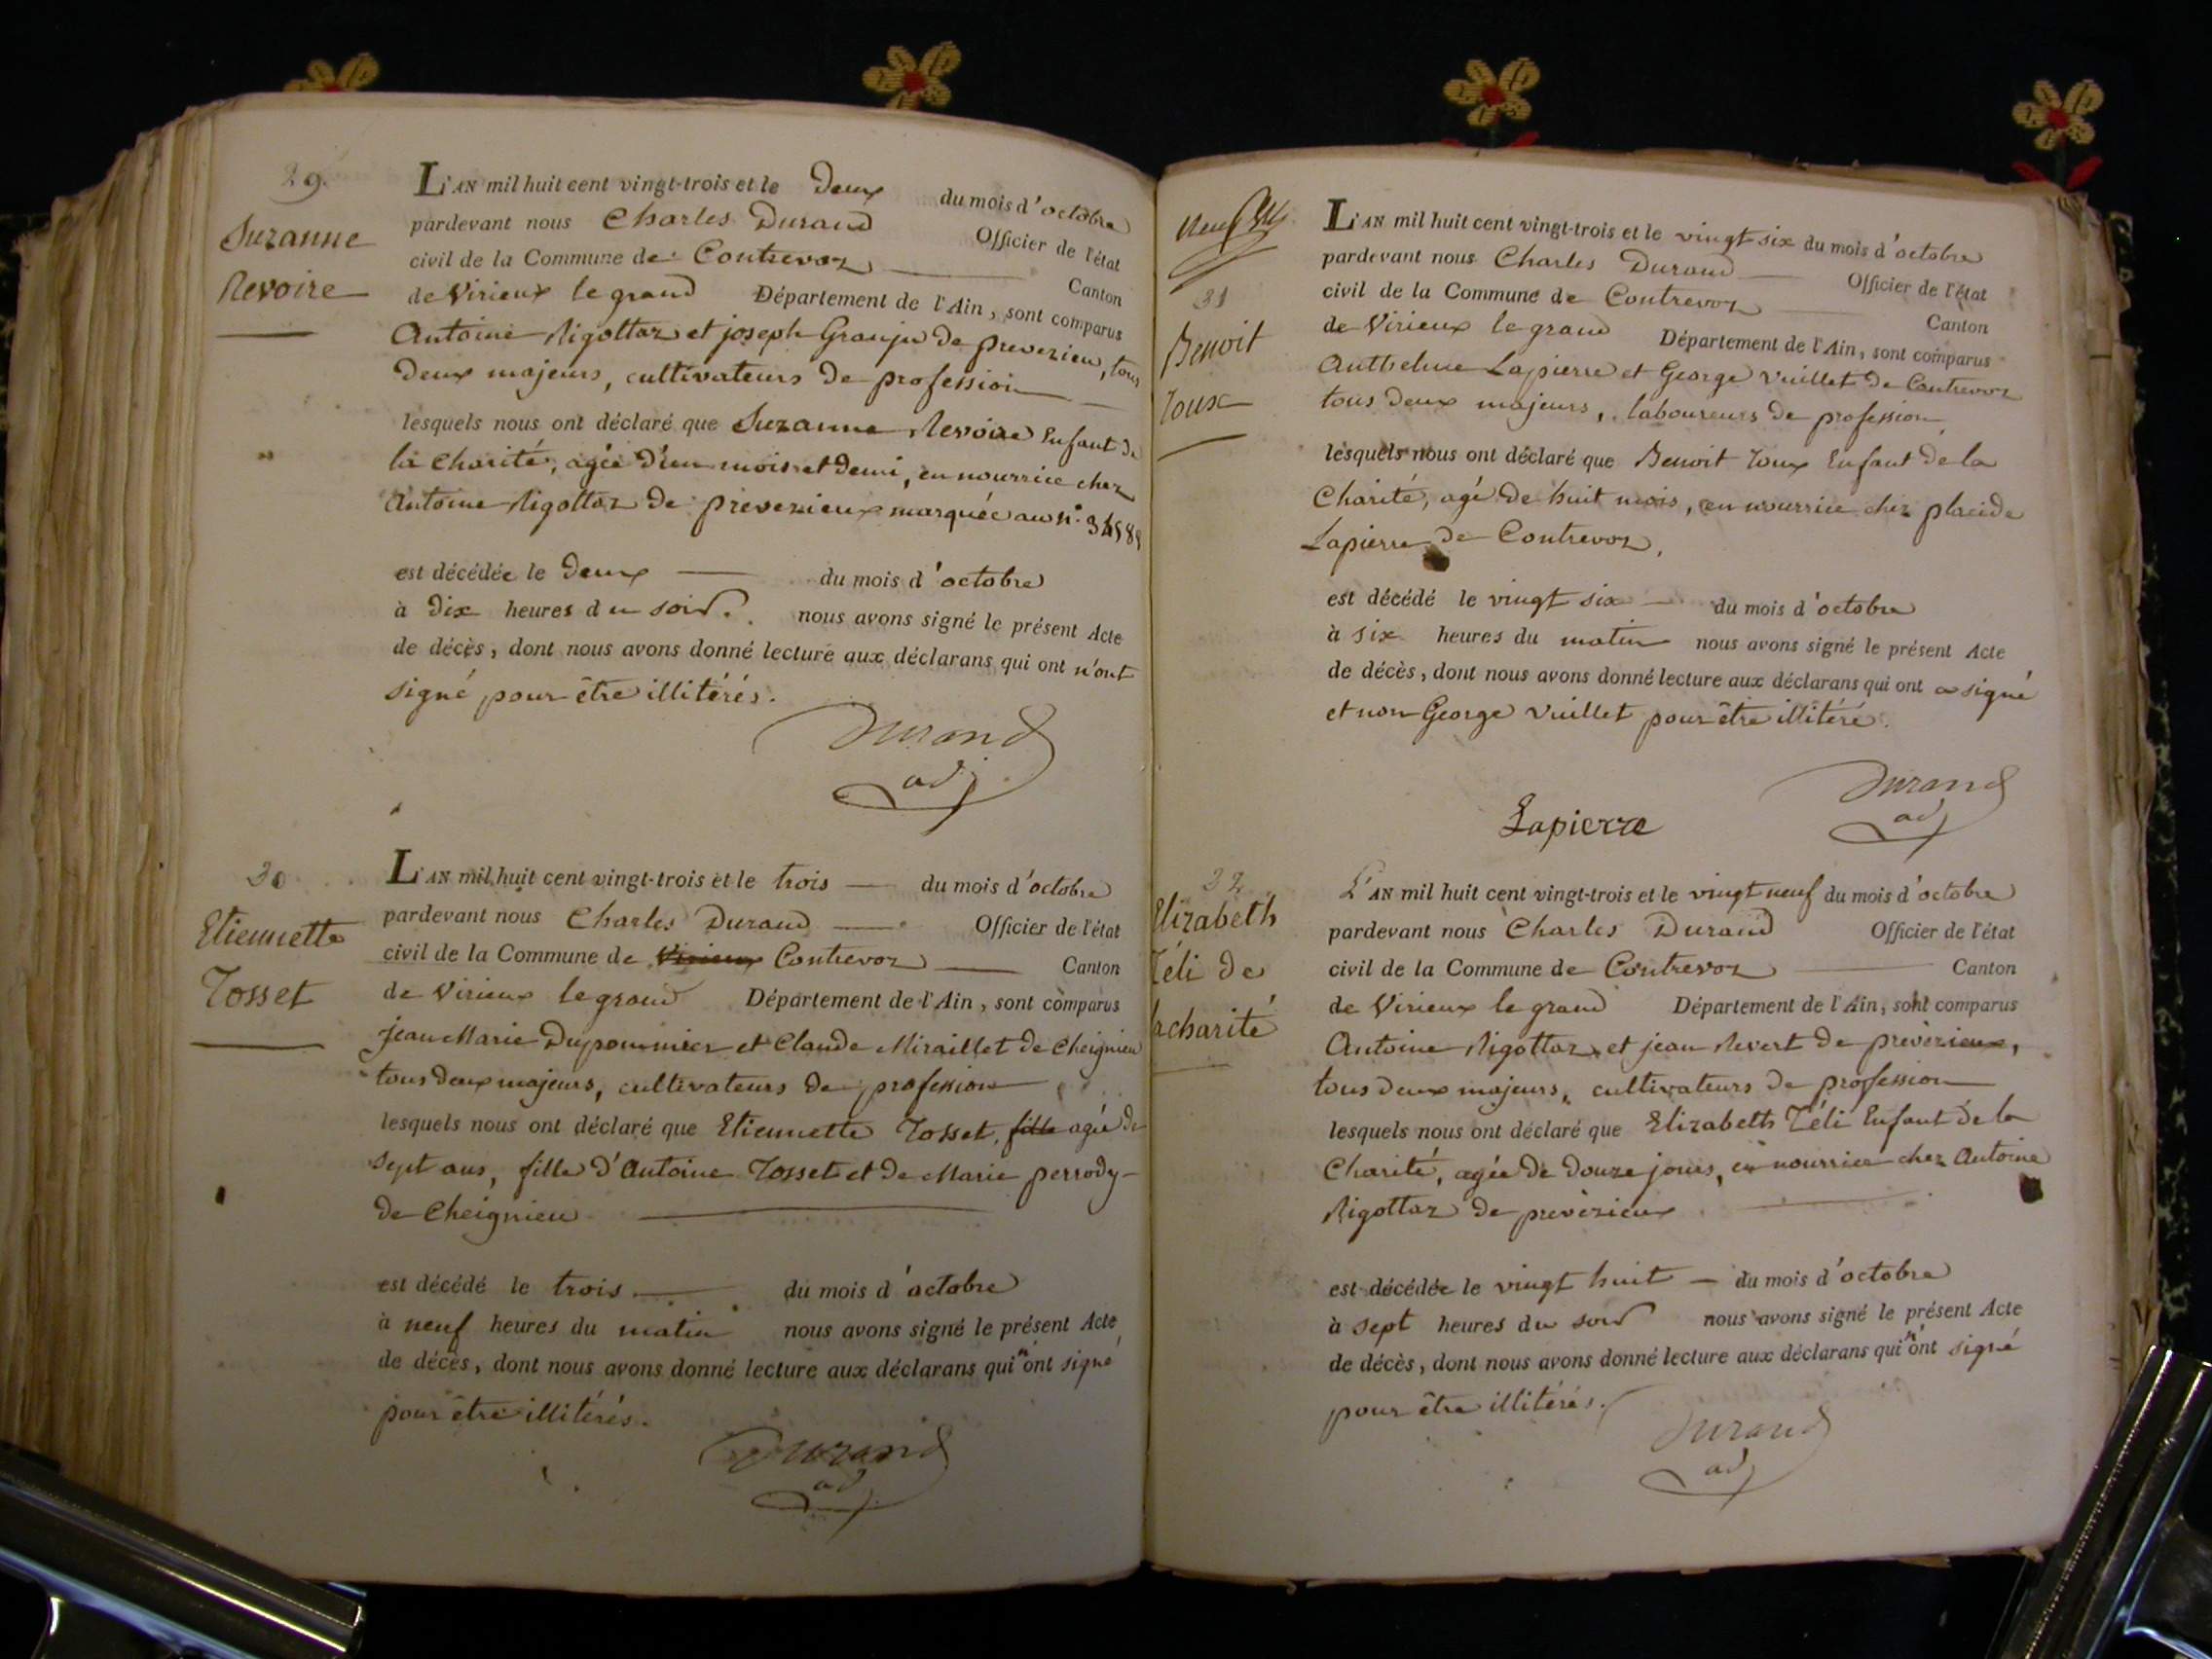 29.
Suzanne
Revoire
L'AN mil huit cent vingt-trois et le deux du mois d'octobre
pardevant nous Charles Durand Officier de l'état
civil de la Commune de Contrevoz Canton
de Virieux le grand Département de l'Ain, sont comparus
Antoine Rigottaz et joseph Granju de preverieu, tous
deux majeurs, cultivateurs de profession
lesquels nous ont déclaré que Suzanne Revoire Enfant de
la Charité, agée d'un mois et demi, en nourrice chez
Antoine Rigottaz de préverieux marquée au n°.
est décédée le deux du mois d'octobre
à dix heures du soir. nous avons signé le présent Acte
de décès, dont nous avons donné lecture aux déclarans qui ont n'ont
signé pour être illitérés.
Durand
adj
30
Etiennette
Tosset
L'AN mil huit cent vingt-trois et le trois du mois d'octobre
pardevant nous Charles Durand Officier de l'état
civil de la Commune de Virieux Contrevoz Canton
de Virieux le grand Département de l'Ain, sont comparus
jean Marie Dupommier et Claude Miraillet de Cheignieu
tous deux majeurs, cultivateurs de profession
lesquels nous ont déclaré que Etiennette Tosset, fille agée de
sept ans, fille d'Antoine Tosset et de Marie perrody
de Cheignieu
est décédé le trois du mois d'octobre
à neuf heures du matin nous avons signé le présent Acte
de décès, dont nous avons donné lecture aux déclarans qui n'ont signé
pour être illitérés.
Durand
adj
31
Benoit
Toux
L'AN mil huit cent vingt-trois et le vingt six du mois d'octobre
pardevant nous Charles Durand Officier de l'état
civil de la Commune de Contrevoz Canton
de Virieux le grand Département de l'Ain, sont comparus
Anthelme Lapierre et George Vuillet de Contrevoz
tous deux majeurs, laboureurs de profession
lesquels nous ont déclaré que Benoit Toux Enfant de la
Charité, agé de huit mois, en nourrice chez placide
Lapierre de Contrevoz,
est décédé le vingt six du mois d'octobre
à six heures du matin nous avons signé le présent Acte
de décès, dont nous avons donné lecture aux déclarans qui ont a signé
et non George Vuillet pour être illitéré.
Durand
adj
Lapierre
32
Elizabeth
Téli de
la charité
L'AN mil huit cent vingt-trois et le vingt neuf du mois d'octobre
pardevant nous Charles Durand Officier de l'état
civil de la Commune de Contrevoz Canton
de Virieux le grand Département de l'Ain, sont comparus
Antoine Rigottaz et jean Revert de prévèrieux,
tous deux majeurs, cultivateurs de profession
lesquels nous ont déclaré que Elizabeth Téli Enfant de la
Charité, agée de douze jours, en nourrice chez Antoine
Rigottaz de prévèrieux
est décédée le vingt huit du mois d'octobre
à sept heures du soir nous avons signé le présent Acte
de décès, dont nous avons donné lecture aux déclarans qui n'ont signé
pour être illitérés.
Durand
adj